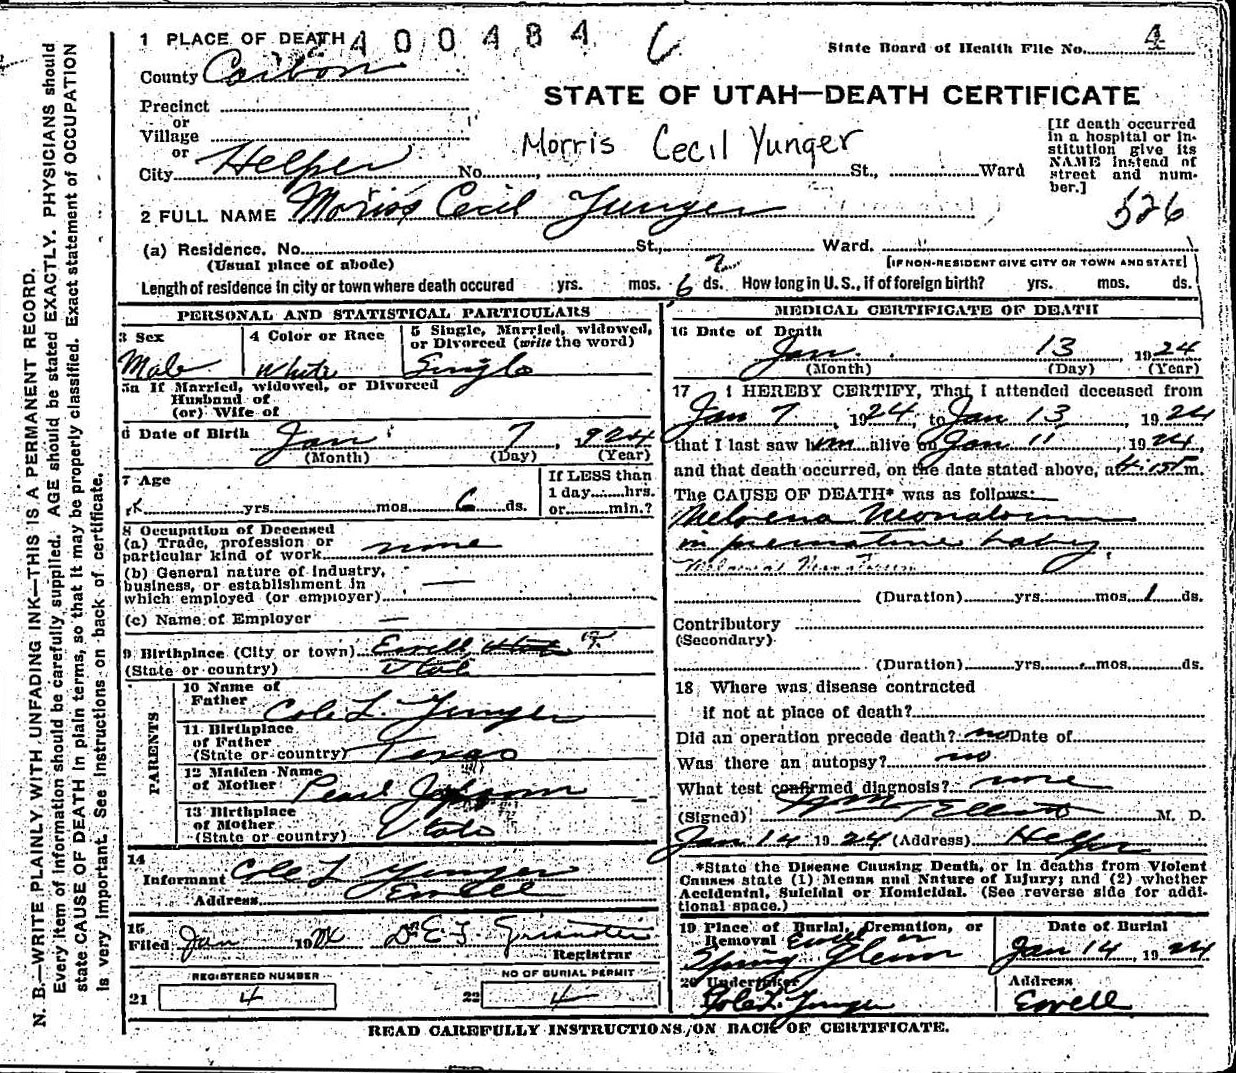 1 PLACE OF DEATH 2400484
State Board of Health File No. 4
County Carbon
STATE OF UTAH—DEATH CERTIFICATE
Precinct
or
Village
or
City Helper No. St., Ward
Morris Cecil Yunger
[If death occurred in a hospital or institution give its NAME instead of street and number.]
526
2 FULL NAME Moriss Cecil Yunger
(a) Residence. No. St., Ward.
(Usual place of abode) [IF NON-RESIDENT GIVE CITY OR TOWN AND STATE]
Length of residence in city or town where death occured yrs. mos. 6 ds. How long in U.S., if of foreign birth? yrs. mos. ds.
PERSONAL AND STATISTICAL PARTICULARS
3 Sex Male
4 Color or Race White
5 Single, Married, widowed, or Divorced (write the word) Single
5a If Married, widowed, or Divorced
Husband of
(or) Wife of
6 Date of Birth Jan 7, 1924
(Month) (Day) (Year)
7 Age yrs. mos. 6 ds.
If LESS than 1 day hrs. or min.?
8 Occupation of Deceased
(a) Trade, profession or particular kind of work none
(b) General nature of industry, business, or establishment in which employed (or employer)
(c) Name of Employer
9 Birthplace (City or town) Ewell, Utah
(State or country) Utah
PARENTS
10 Name of Father Cole L. Yunger
11 Birthplace of Father (State or country) Texas
12 Maiden Name of Mother Pearl
13 Birthplace of Mother (State or country) Utah
14
Informant Cole L Yunger
Address Ewell
15
Filed Jan 1924
Registrar
REGISTERED NUMBER
21 4
NO OF BURIAL PERMIT
22 4
MEDICAL CERTIFICATE OF DEATH
16 Date of Death
Jan. 13, 1924
(Month) (Day) (Year)
17 I HEREBY CERTIFY, That I attended deceased from
Jan 7, 1924, to Jan 13, 1924
that I last saw him alive on Jan 11, 1924,
and that death occurred, on the date stated above, at m.
The CAUSE OF DEATH* was as follows:
Melaena Neonatorum
in premature baby
(Duration) yrs. mos. 1 ds.
Contributory
(Secondary)
(Duration) yrs. mos. ds.
18 Where was disease contracted
if not at place of death?
Did an operation precede death? no Date of
Was there an autopsy? no
What test confirmed diagnosis? none
(Signed) Elliott M. D.
Jan 14 1924 (Address) Helper
*State the Disease Causing Death, or in deaths from Violent Causes state (1) Means and Nature of Injury; and (2) whether Accidental, Suicidal or Homicidal. (See reverse side for additional space.)
19 Place of Burial, Cremation, or Removal Ewell in
Spring Glenn
Date of Burial
Jan 14, 1924
20 Undertaker
Cole L. Yunger
Address
Ewell
READ CAREFULLY INSTRUCTIONS ON BACK OF CERTIFICATE.
N. B.—WRITE PLAINLY, WITH UNFADING INK—THIS IS A PERMANENT RECORD.
Every item of information should be carefully supplied. AGE should be stated EXACTLY. PHYSICIANS should
state CAUSE OF DEATH in plain terms, so that it may be properly classified. Exact statement of OCCUPATION
is very important. See instructions on back of certificate.